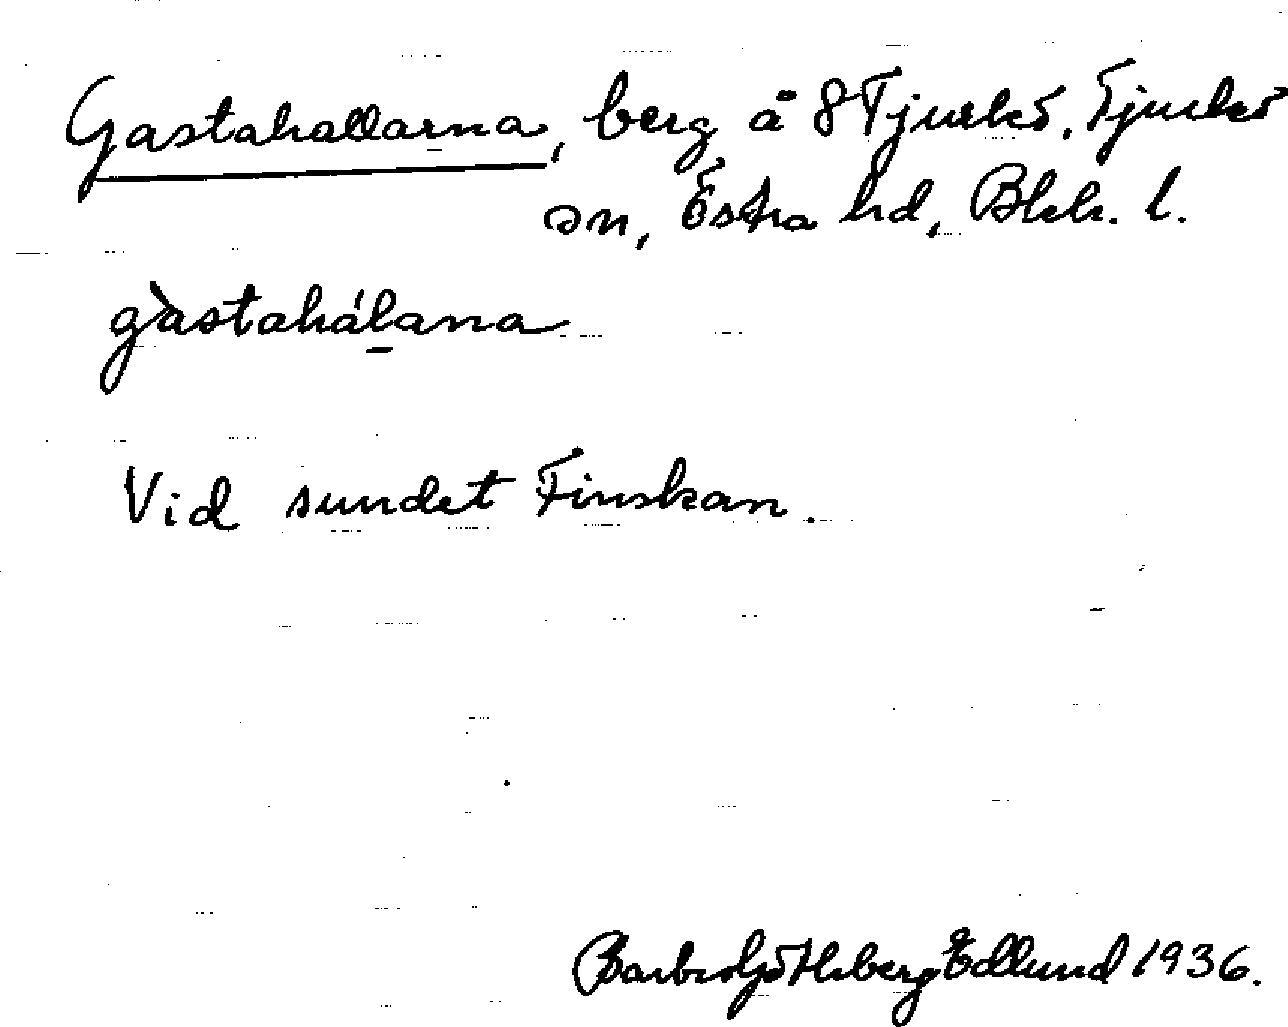 Gastahallarna, berg å 8 Tjurkö, Tjurkö
sn, Östra hd, Blek. l.
gàstahálana
Vid sundet Finskan.
Barbro Göthberg Edlund 1936.